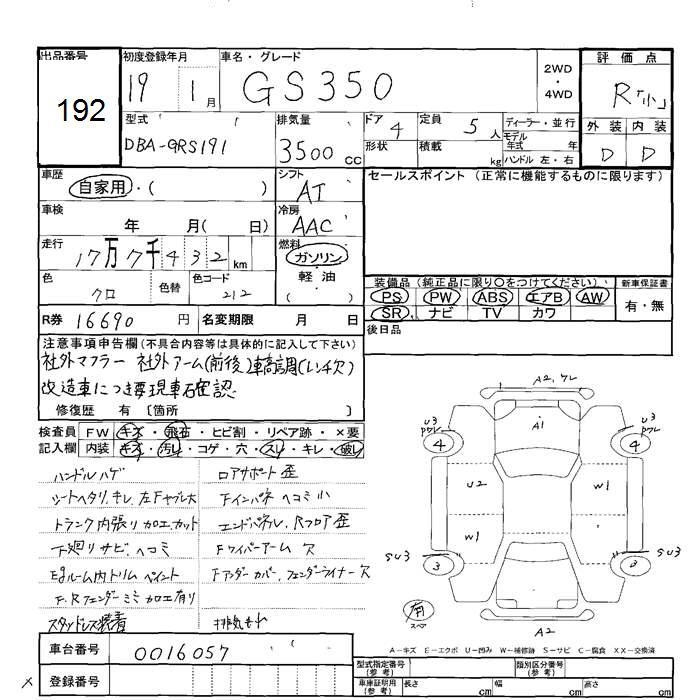 出品番号
192
初度登録年月
19 1 月
車名・グレード
GS350
2WD
・
4WD
評価点
R「小」
外装 内装
D D
型式
DBA-GRS191
排気量
3500 cc
ドア 4
形状
定員 5 人
積載 kg
ディーラー・並行
モデル年式 年
ハンドル 左・右
車歴
自家用・( )
シフト
AT
セールスポイント (正常に機能するものに限ります)
車検
年 月( 日)
冷房
AAC
走行
17万7千432 km
燃料
ガソリン
・
軽油
( )
色
クロ
色替
色コード
212
装備品 (純正品に限り○をつけてください)
PS PW ABS エアB AW
SR ナビ TV カワ
新車保証書
有・無
R券 16690 円
名変期限 月 日
後日品
注意事項申告欄(不具合内容等は具体的に記入して下さい)
社外マフラー 社外アーム(前後)車高調(レンチ欠)
改造車につき要現車確認
修復歴 有〔箇所 〕
検査員
記入欄
FW キズ・飛石・ヒビ割・リペア跡・×要
内装 キズ・汚レ・コゲ・穴・スレ・キレ・破レ
ハンドルハゲ
シートヘタリ、キレ、左F
トランク内張り加工カット
下廻りサビ、ヘコミ
Egルーム内トリムペイント
F、Rフェンダーミミ加工有り
スタッドレス装着
ロアサポート歪
Fインパネヘコミ小
エンドパネル、Rフロア歪
Fワイパーアーム欠
Fアンダーカバー、フェンダーライナー欠
排気もれ
A2,
A1
U3
4
U3
4
U2
W1
W1
SU3
3
SU3
3
有
スペア
A2
A－キズ E－エクボ U－凹み W－補修跡 S－サビ C－腐食 XX－交換済
車台番号 0016057
登録番号
型式指定番号
(参考)
類別区分番号
(参考)
車庫証明用
(参考)
長さ cm 幅 cm 高さ cm